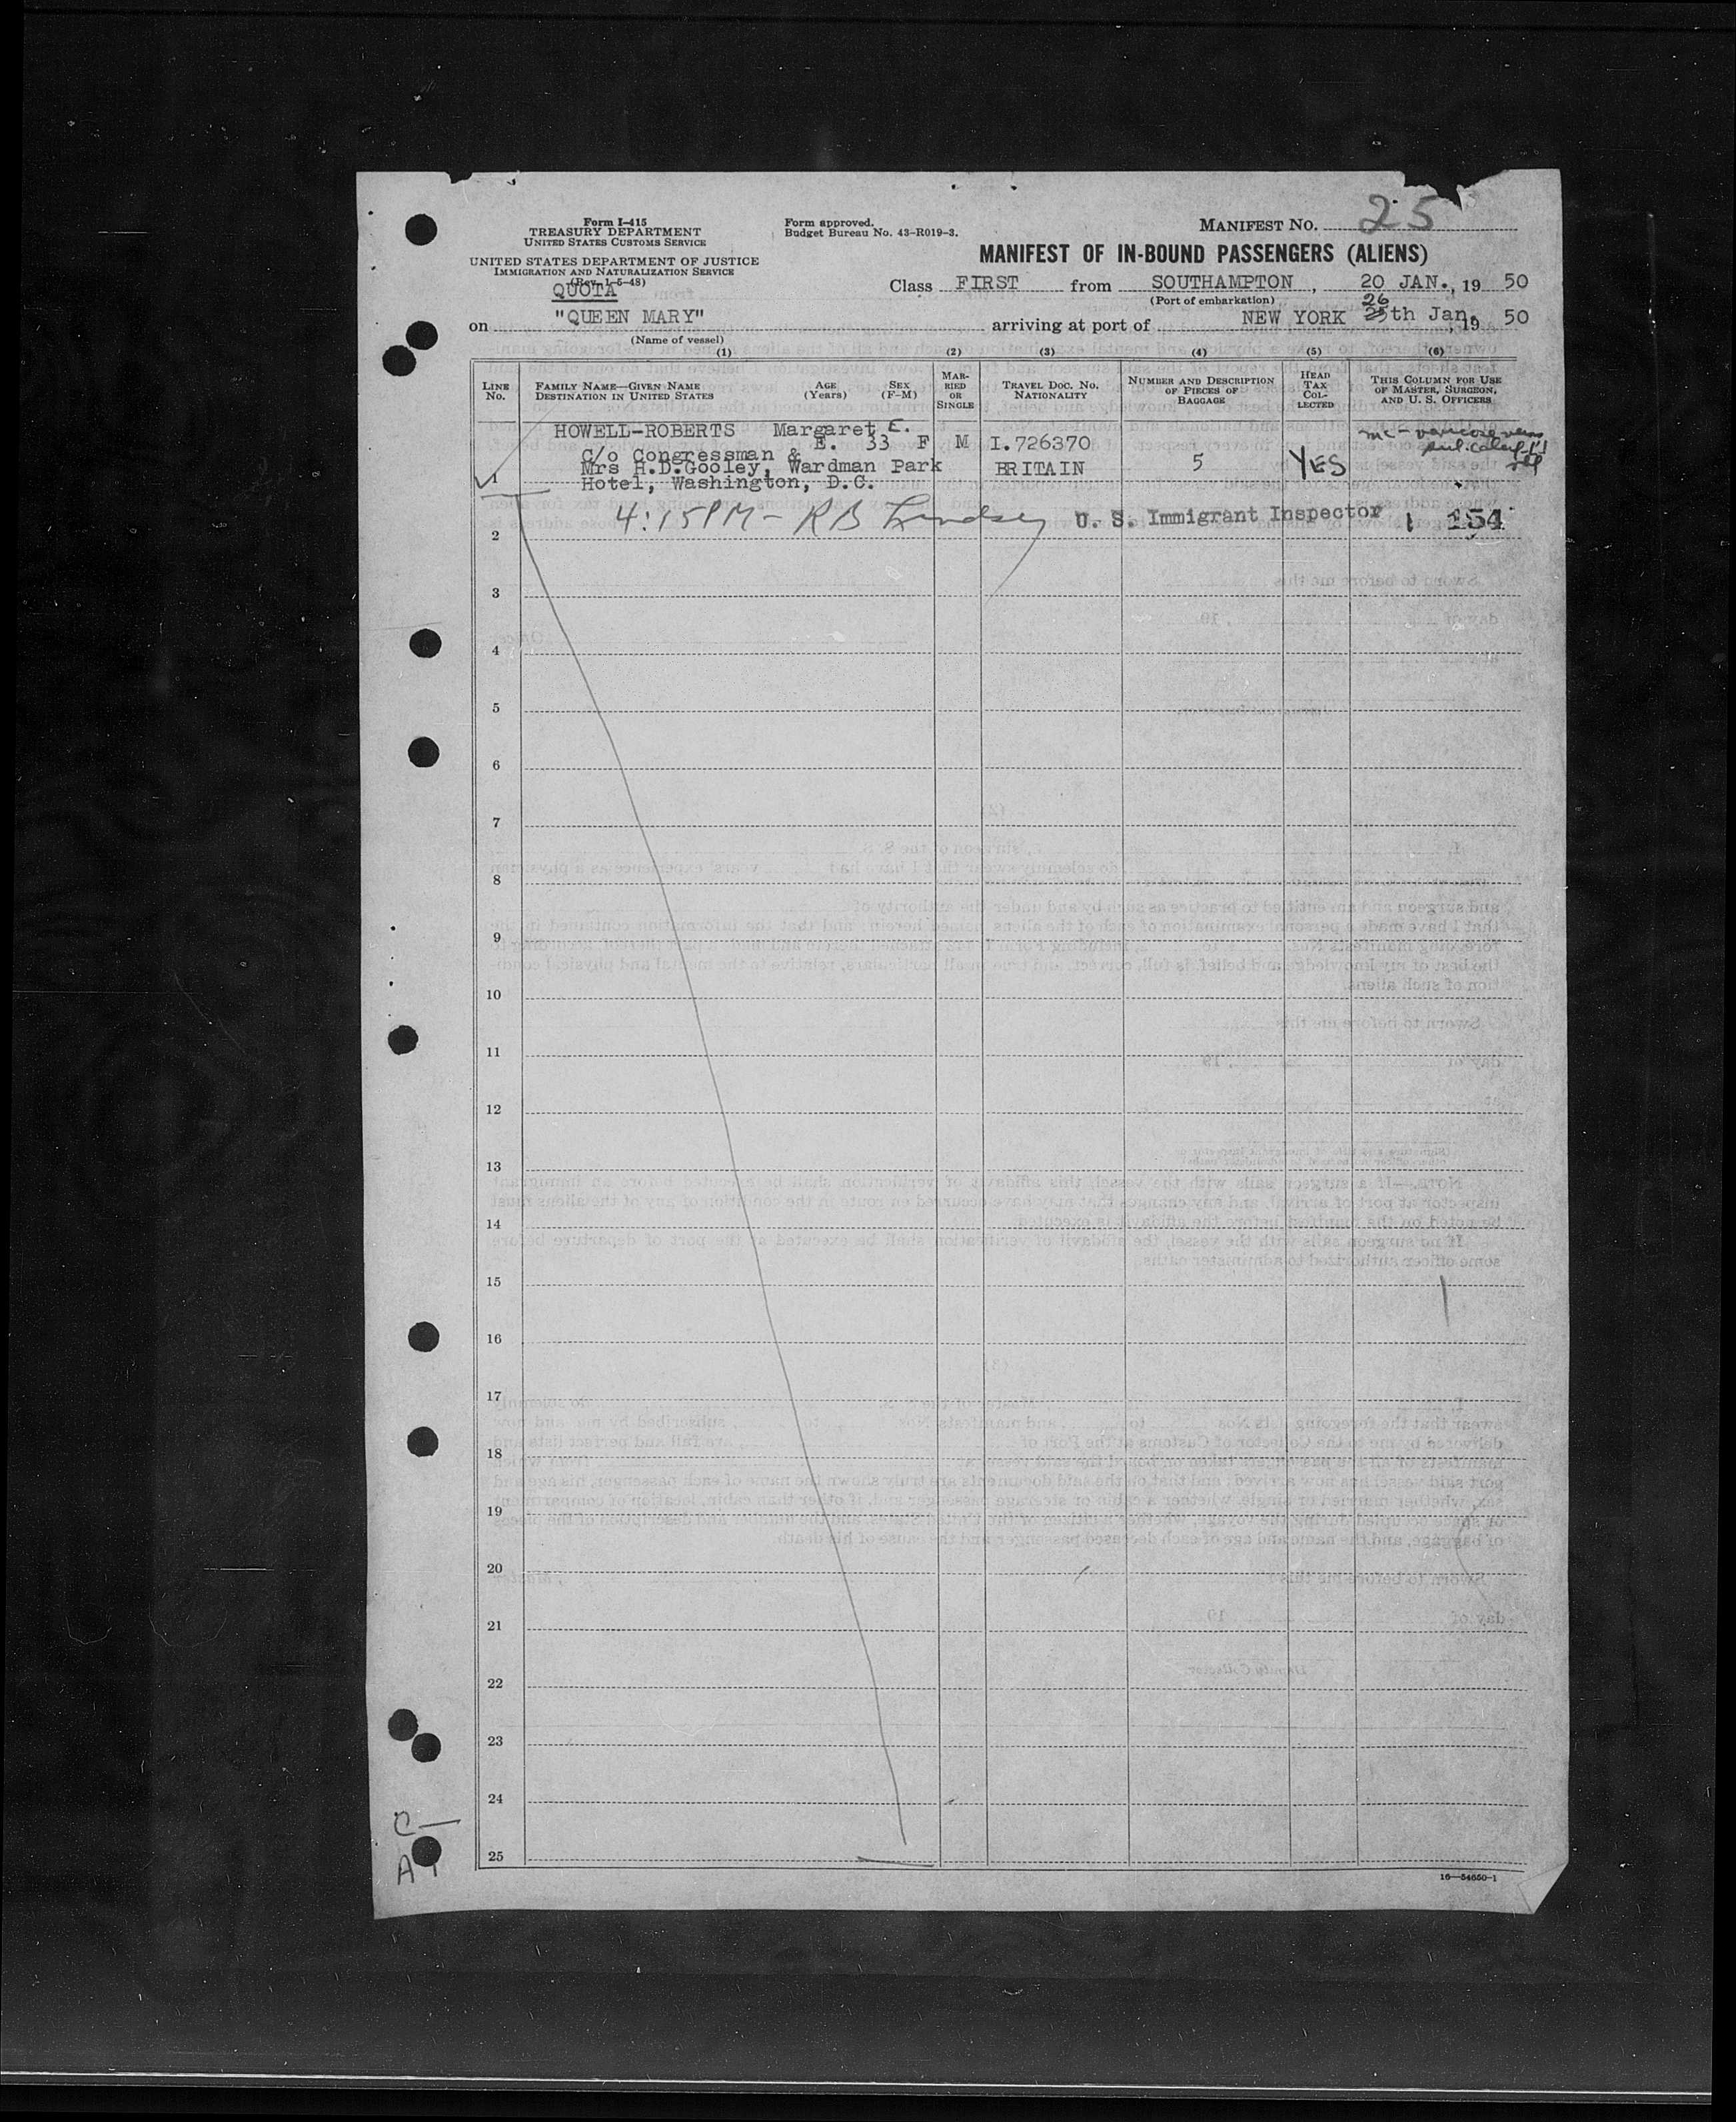 Form I-415
TREASURY DEPARTMENT
UNITED STATES CUSTOMS SERVICE
UNITED STATES DEPARTMENT OF JUSTICE
IMMIGRATION AND NATURALIZATION SERVICE
(Rev. 1-5-48)
QUOTA
Form approved.
Budget Bureau No. 43-R019-3.
MANIFEST NO. 25
MANIFEST OF IN-BOUND PASSENGERS (ALIENS)
Class FIRST from SOUTHAMPTON, 20 JAN., 19 50
(Port of embarkation)
26
on "QUEEN MARY" arriving at port of NEW YORK 25th Jan., 19 50
(Name of vessel)
(1) (2) (3) (4) (5) (6)
LINE No.
FAMILY NAME—GIVEN NAME
DESTINATION IN UNITED STATES
AGE (Years)
SEX (F-M)
MARRIED OR SINGLE
TRAVEL DOC. NO.
NATIONALITY
NUMBER AND DESCRIPTION OF PIECES OF BAGGAGE
HEAD TAX COLLECTED
THIS COLUMN FOR USE OF MASTER, SURGEON, AND U. S. OFFICERS
HOWELL-ROBERTS Margaret E.
E. 33 F M I.726370
C/o Congressman &
Mrs H.D.Cooley, Wardman Park BRITAIN 5 YES
1 Hotel, Washington, D.C.
mc - varicose veins
4:15PM - RB Lindsey U. S. Immigrant Inspector 1 154
2
3
4
5
6
7
8
9
10
11
12
13
14
15
16
17
18
19
20
21
22
23
24
25
C —
A 1
16—54650-1